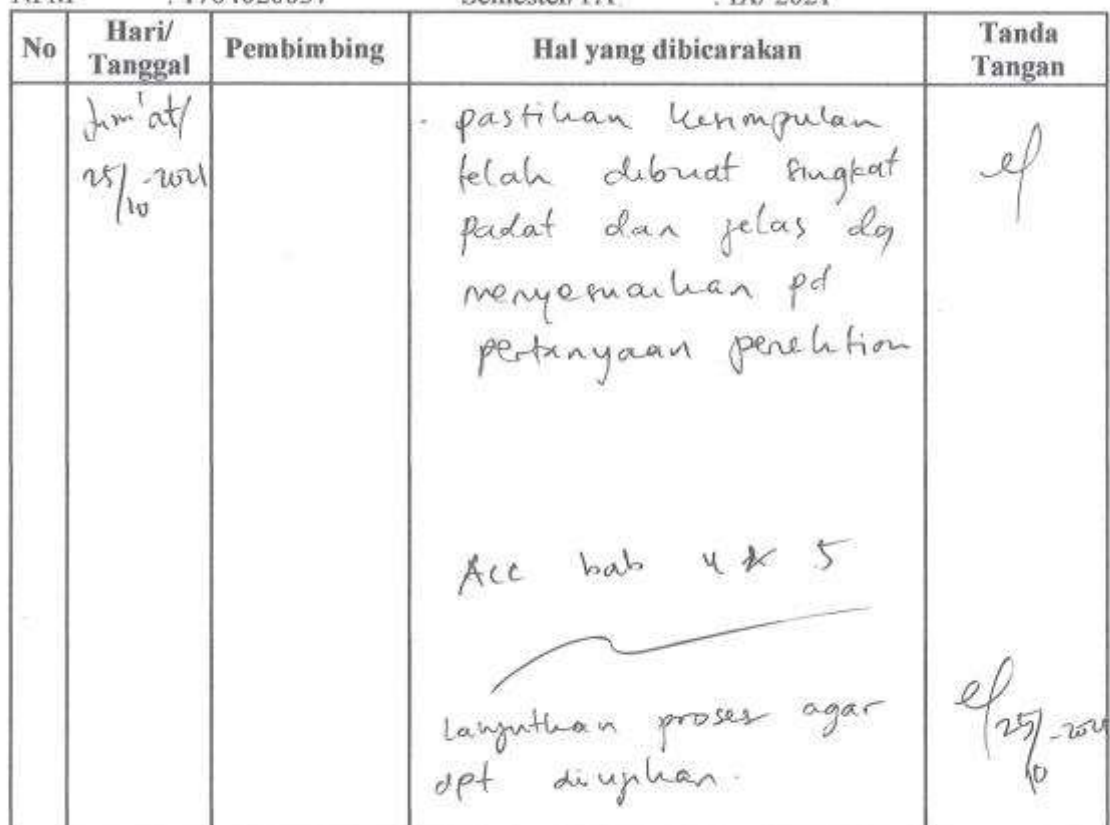 No Hari/ Tanggal Pembimbing Hal yang dibicarakan Tanda Tangan
Jum'at/
25/10-2021
- pastikan kesimpulan
telah dibuat singkat
padat dan jelas dg
menyesuaikan pd
pertanyaan penelitian
Acc bab 4 & 5
Lanjutkan proses agar
dpt diujikan.
25/10-2021